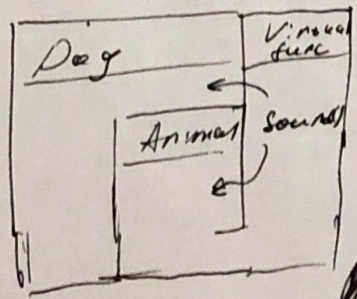 Dog
Virtual
func
Animal
sound